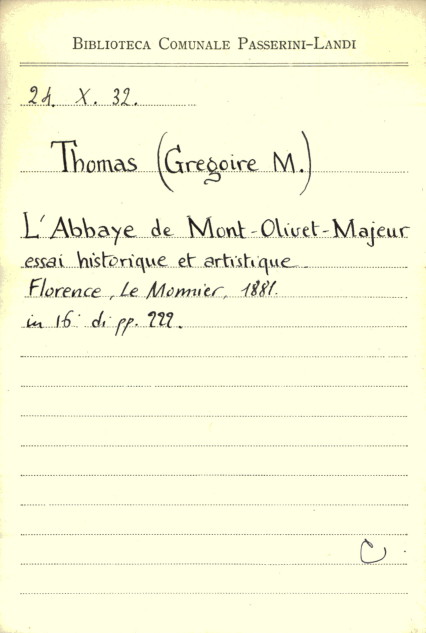 BIBLIOTECA COMUNALE PASSERINI-LANDI
24. X. 32.
Thomas (Gregoire M.)
L'Abbaye de Mont-Olivet-Majeur
essai historique et artistique
Florence, Le Monnier, 1881.
in 16° di pp. 222.
C